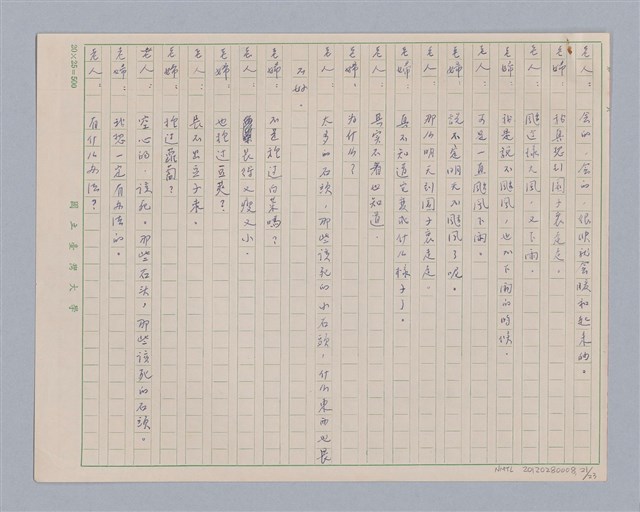 老人：會的，會的，很快就會暖和起來的。
老婦：我真想到園子裏走走。
老人：颳這樣大風，又下雨。
老婦：我是說不颳風，也不下雨的時候。
老人：可是一直颳風下雨。
老婦：說不定明天不颳風了呢。
老人：那麼明天到園子裏走走。
老婦：真不知道它變成什麼樣子了。
老人：其實不看也知道。
老婦：為什麼？
老人：太多的石頭，那些該死的小石頭，什麼東西也長
不好。
老婦：不是種過白菜嗎？
老人：長得又瘦又小。
老婦：也種過豆莢？
老人：長不出豆子來。
老婦：種過蘿蔔？
老人：空心的，該死。那些石頭，那些該死的石頭。
老婦：我想一定有辦法的。
老人：有什麼辦法？
20×25=500
國立臺灣大學
NMTL 20120280008 21/23